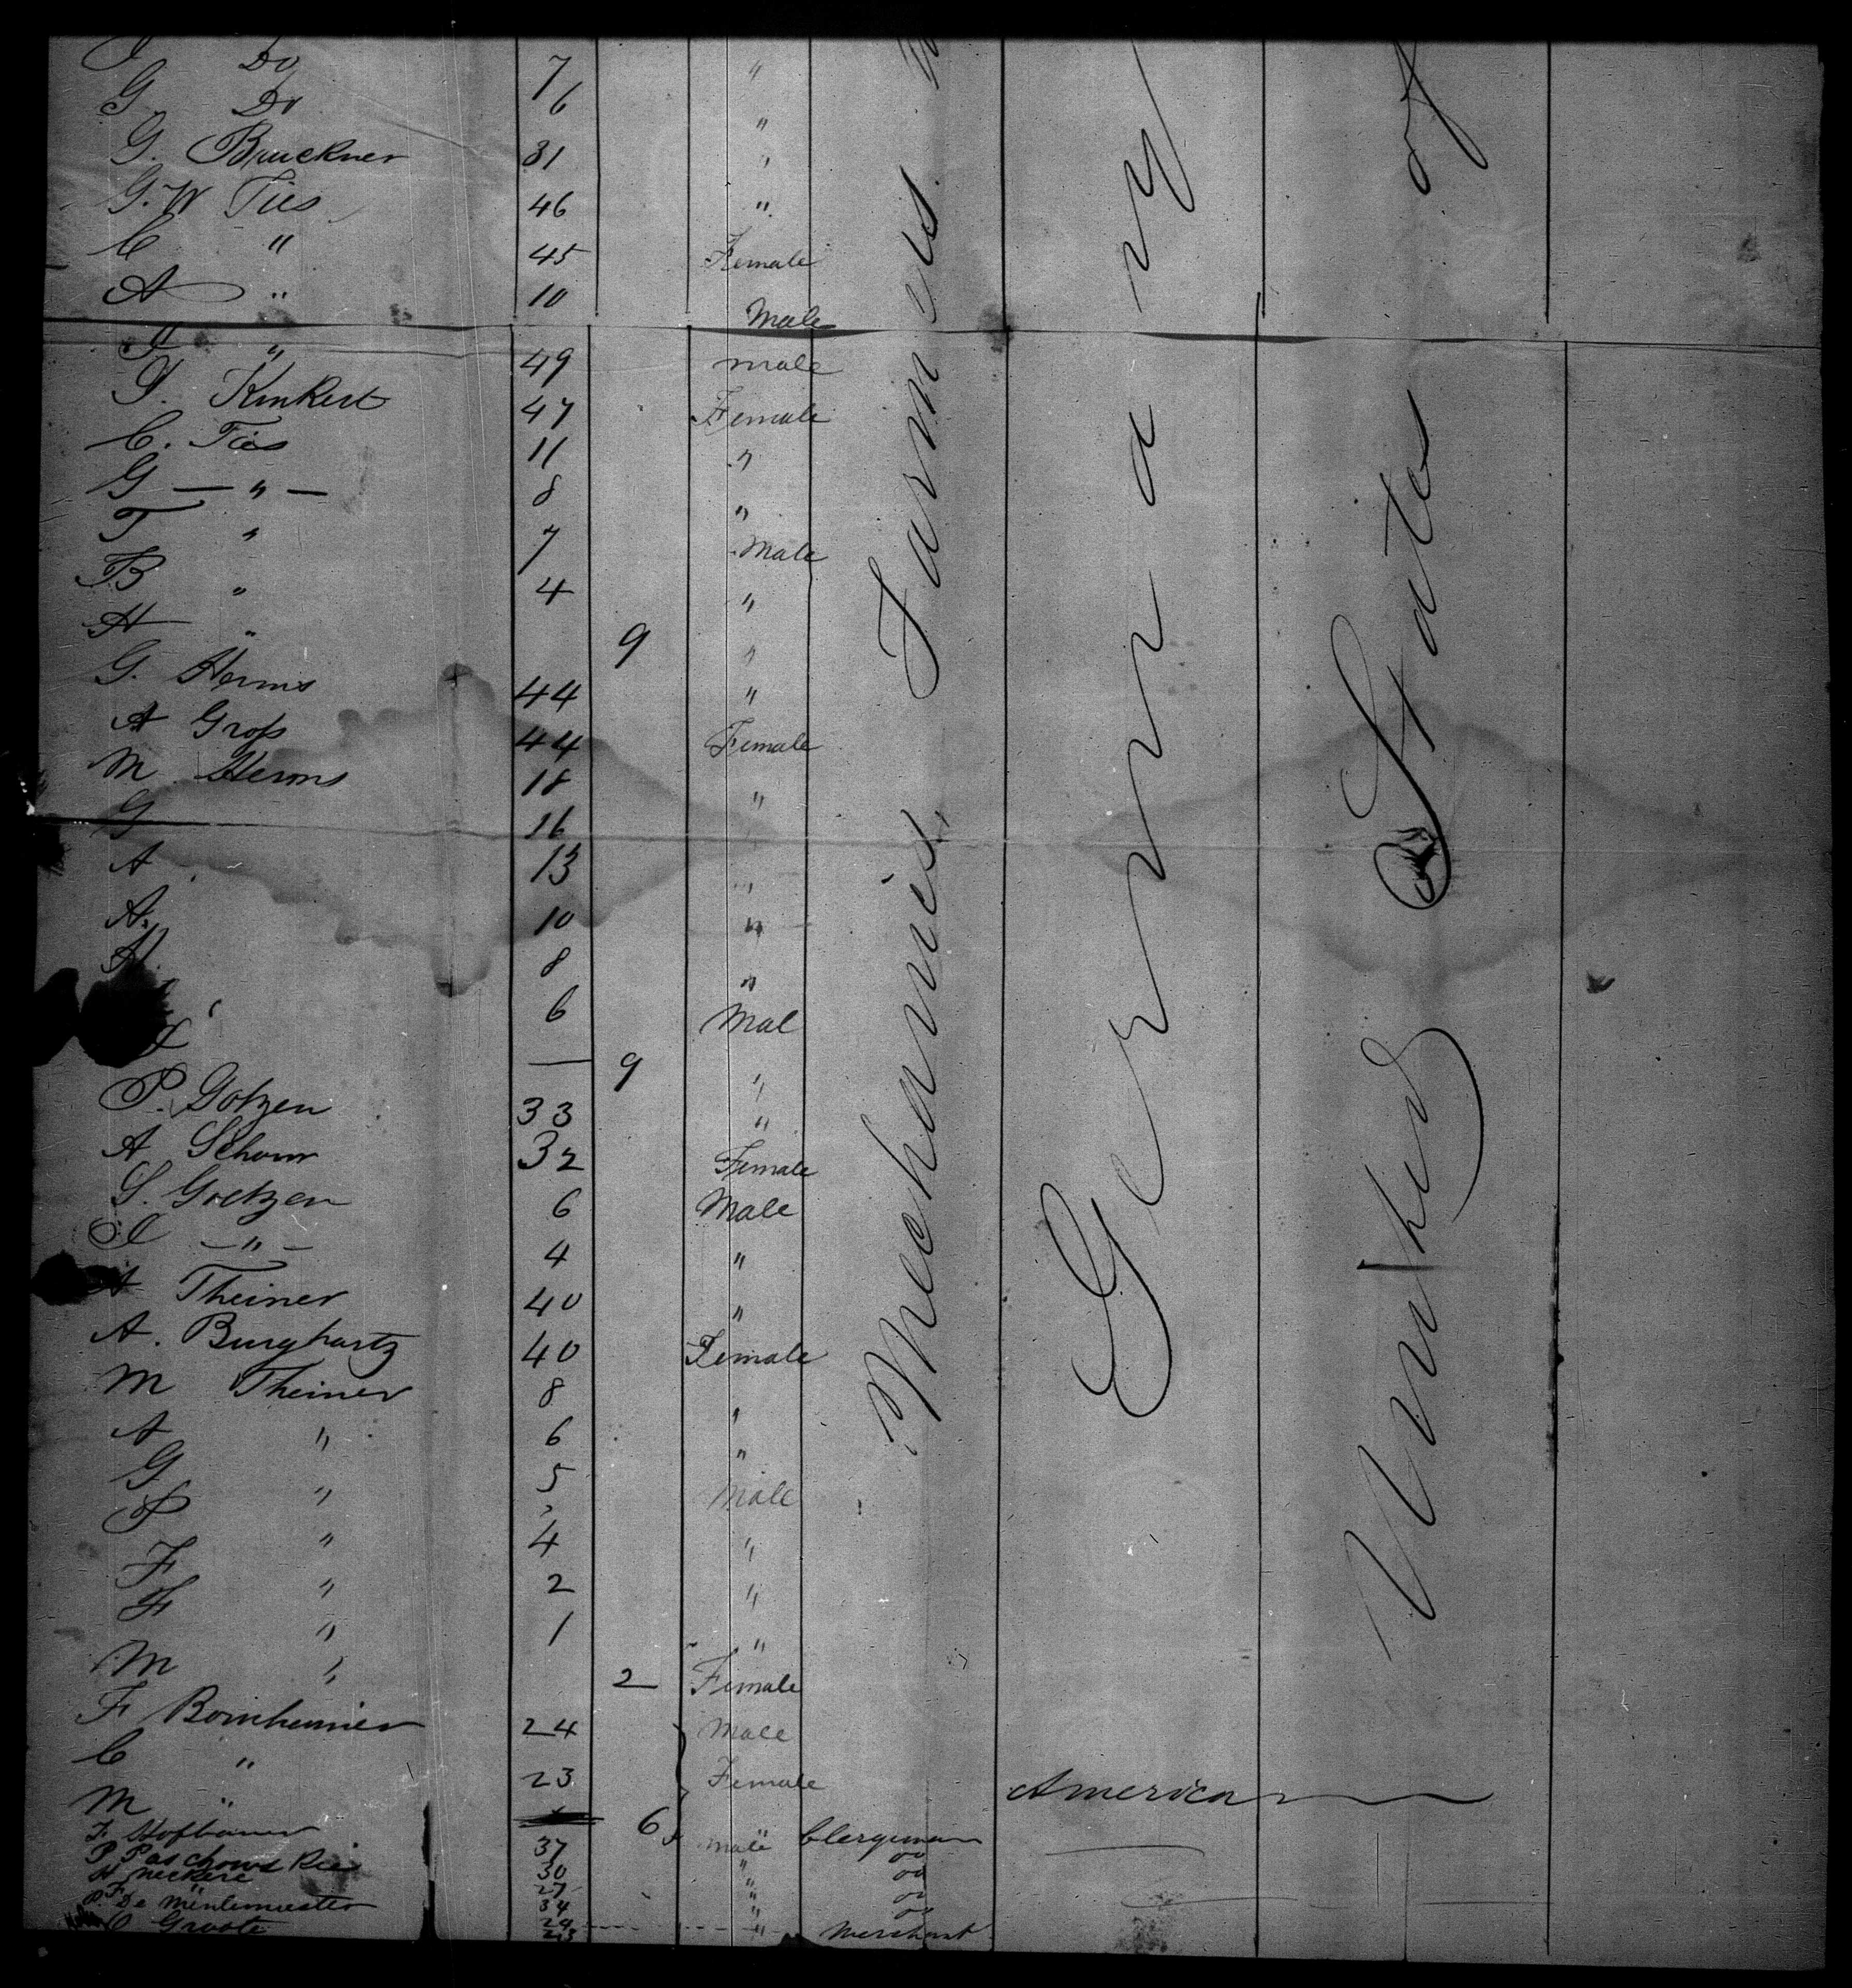 Do 7 "
G Do 6 "
G. Bruckner 31 "
G. W Ties 46 "
C " 45 Female
A " 10 Male
" 49 male
Kinkert 47 Female
C. Ties 11 "
G — " — 8 "
T " 7 Male
B " 4 "
A " 9 "
G. Herms 44 "
A Groß 44 Female
M. Herms 18 "
G 16
A 13 "
A. 10 "
A. 8 "
6 Mal
— 9 "
P. Gotzen 33 "
A Schorn 32 Female
S. Goetzen 6 Male
— " — 4 "
A Theiner 40 "
A. Burghartz 40 Female
M Theiner 8 "
A " 6 "
G " 5 Male
P " 4 "
F " 2 "
F " 1 "
M " 2 Female
F Bornheimer 24 Male
C " 23 Female
M " 6 "
F. Hofbauer 37 Male Clergyman
P. 30 " do
H Neckere 27 " do
P. F. De 34 " do
C Groote " Merchant
Mechanics, Farmers
Germany
American
United States of